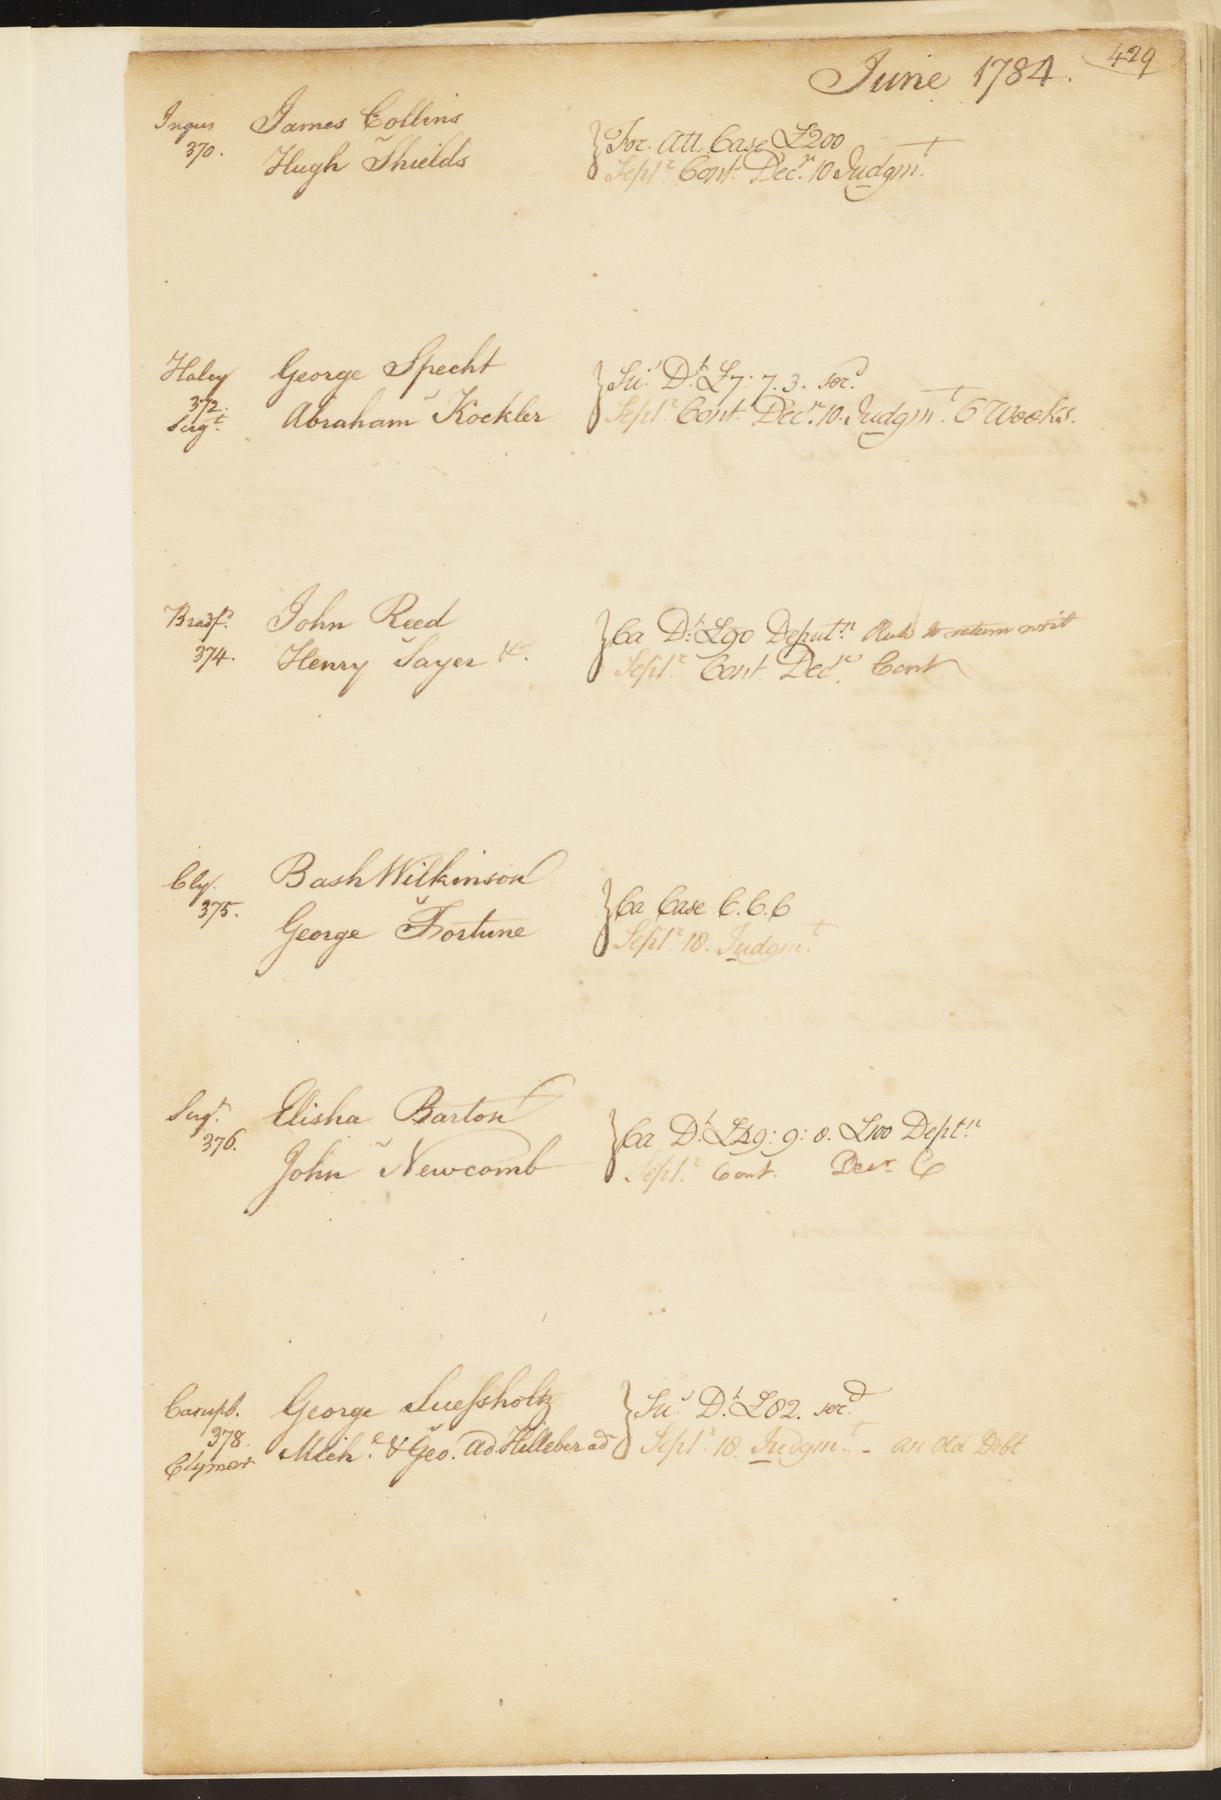 June 1784. 429
Ingus James Collins
370. v Hugh Shields
For. Att. Case £200
Sept.r Cont. Dec.r 10 Judgm.t
Haley George Specht
372. v Abraham Kockler
Serg.t
Su.s D.t £7: 7. 3. ser.d
Sept.r Cont. Dec.r 10. Judgm.t 6 Weeks.
Bradf.d John Reed
374. v Henry Sayer &c.
Ca D.t £90 Deput.n Rule to return writ
Sept.r Cont. Dec.r Cont
Cly. Bash Wilkinson
375. v George Fortune
Ca Case C.C.C
Sept.r 18. Judgm.t
Serg.t Elisha Barton
376. v John Newcomb
Ca D.t £49: 9: 8. £100 Dept.n
Sept.r Cont. Decr. C
Campb. George Suessholtz
378. v Mich.l & Geo. Ad. Hilleber ad
Clymer
Su.s D.t £82. ser.d
Sept.r 18. Judgm.t - an Old Debt